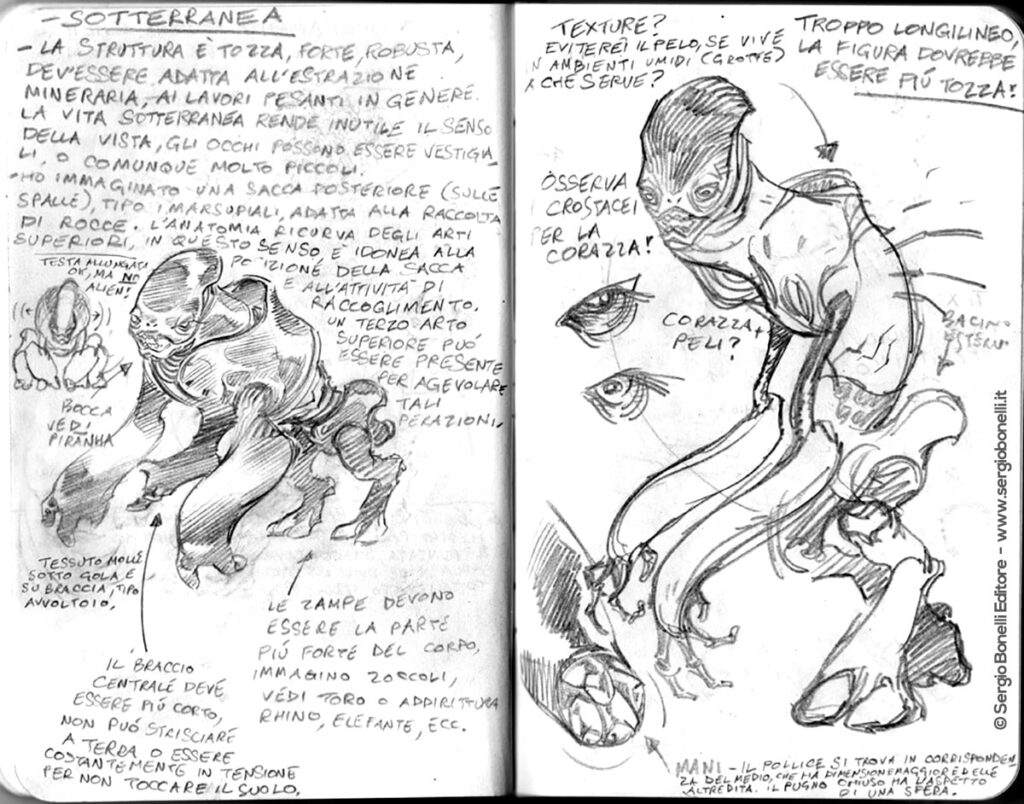 - SOTTERRANEA
- LA STRUTTURA È TOZZA, FORTE, ROBUSTA,
DEV'ESSERE ADATTA ALL'ESTRAZIONE
MINERARIA, AI LAVORI PESANTI IN GENERE.
LA VITA SOTTERRANEA RENDE INUTILE IL SENSO
DELLA VISTA, GLI OCCHI POSSONO ESSERE VESTIGIA
LI, O COMUNQUE MOLTO PICCOLI.
- HO IMMAGINATO UNA SACCA POSTERIORE (SULLE
SPALLE), TIPO I MARSUPIALI, ADATTA ALLA RACCOLTA
DI ROCCE. L'ANATOMIA RICURVA DEGLI ARTI
SUPERIORI, IN QUESTO SENSO, È IDONEA ALLA
POSIZIONE DELLA SACCA
E ALL'ATTIVITÀ DI
RACCOGLIMENTO.
UN TERZO ARTO
SUPERIORE PUÓ
ESSERE PRESENTE
PER AGEVOLARE
TALI
OPERAZIONI.
TESTA ALLUNGATA
OK, MA NO
ALIEN!
BOCCA
VEDI
PIRANHA
TESSUTO MOLLE
SOTTO GOLA E
SU BRACCIA, TIPO
AVVOLTOIO.
IL BRACCIO
CENTRALE DEVE
ESSERE PIÚ CORTO,
NON PUÓ STRISCIARE
A TERRA O ESSERE
COSTANTEMENTE IN TENSIONE
PER NON TOCCARE IL SUOLO.
LE ZAMPE DEVONO
ESSERE LA PARTE
PIÚ FORTE DEL CORPO,
IMMAGINO ZOCCOLI,
VEDI TORO O ADDIRITTURA
RHINO, ELEFANTE, ECC.
TEXTURE?
EVITEREI IL PELO, SE VIVE
IN AMBIENTI UMIDI (GROTTE)
A CHE SERVE?
TROPPO LONGILINEO,
LA FIGURA DOVREBBE
ESSERE PIÚ TOZZA!
OSSERVA
I CROSTACEI
PER LA
CORAZZA!
CORAZZA +
PELI?
BACINO
ESTERNO
MANI - IL POLLICE SI TROVA IN CORRISPONDEN
ZA DEL MEDIO, CHE HA DIMENSIONE MAGGIORE DELLE
ALTRE DITA. IL PUGNO CHIUSO HA L'ASPETTO
DI UNA SFERA.
© Sergio Bonelli Editore - www.sergiobonelli.it